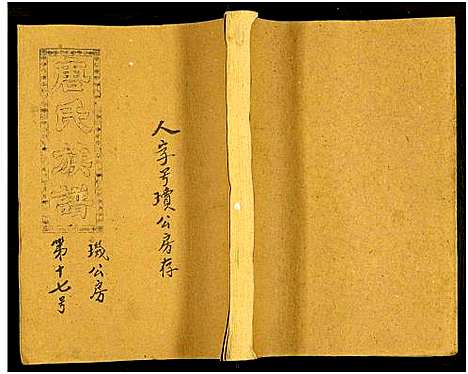 人字号璸公房存
唐氏族譜
璣公房
第十七号